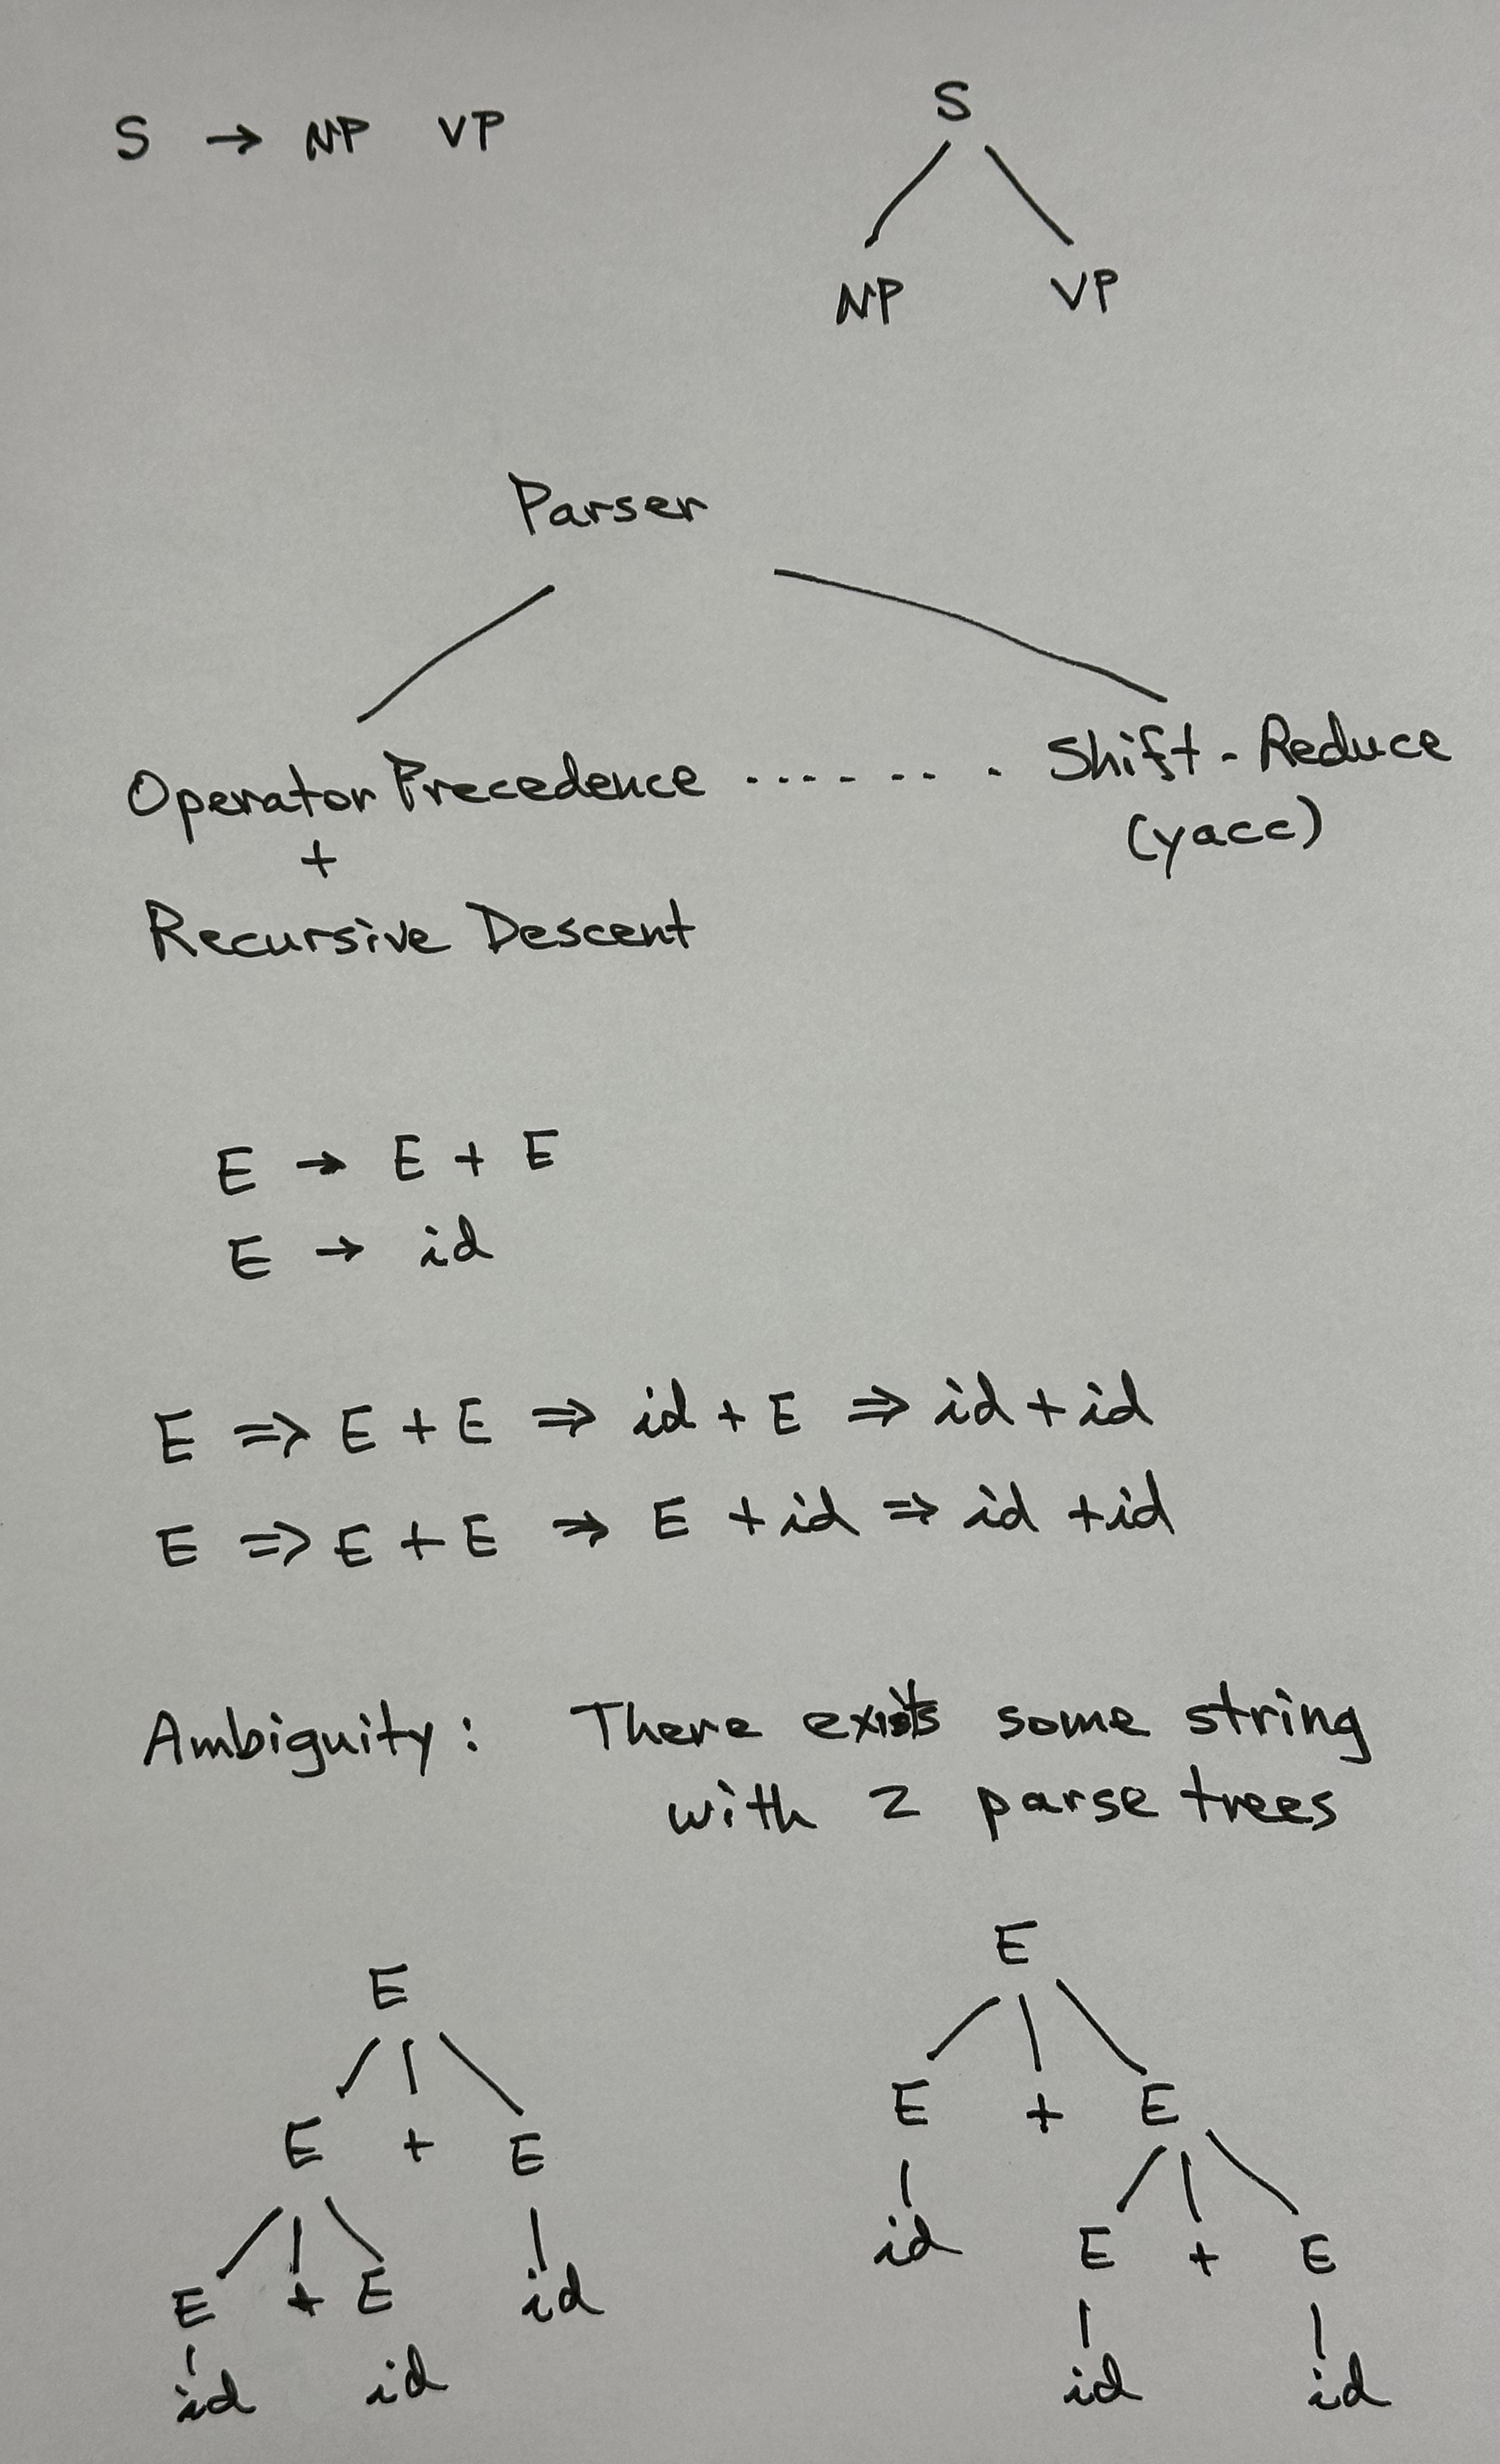 S → NP VP
S
NP VP
Parser
Operator Precedence ········ Shift-Reduce
+ (yacc)
Recursive Descent
E → E + E
E → id
E ⇒ E + E ⇒ id + E ⇒ id + id
E ⇒ E + E ⇒ E + id ⇒ id + id
Ambiguity: There exists some string
with 2 parse trees
E
E + E
E + E id
id id
E
E + E
id E + E
id id